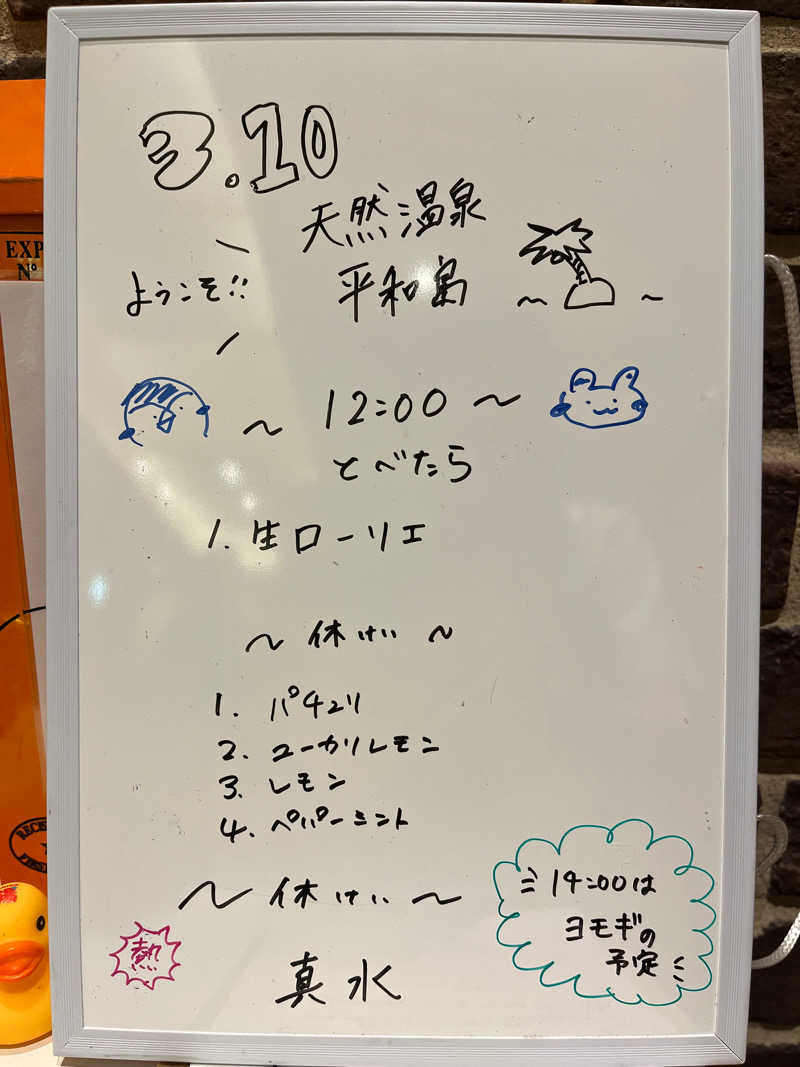 3.10
天然温泉
ようこそ!!
平和島
～ 12:00 ～
とべたら
1. 生ローリエ
～ 休けい ～
1. パチュリ
2. ユーカリレモン
3. レモン
4. ペパーミント
～ 休けい ～
熱
真水
14:00は
ヨモギの
予定
EXP
Nº